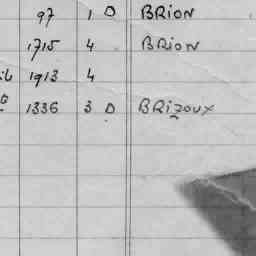 97 1 D BRION
1715 4 BRION
1913 4
1336 3 D BRIZOUX